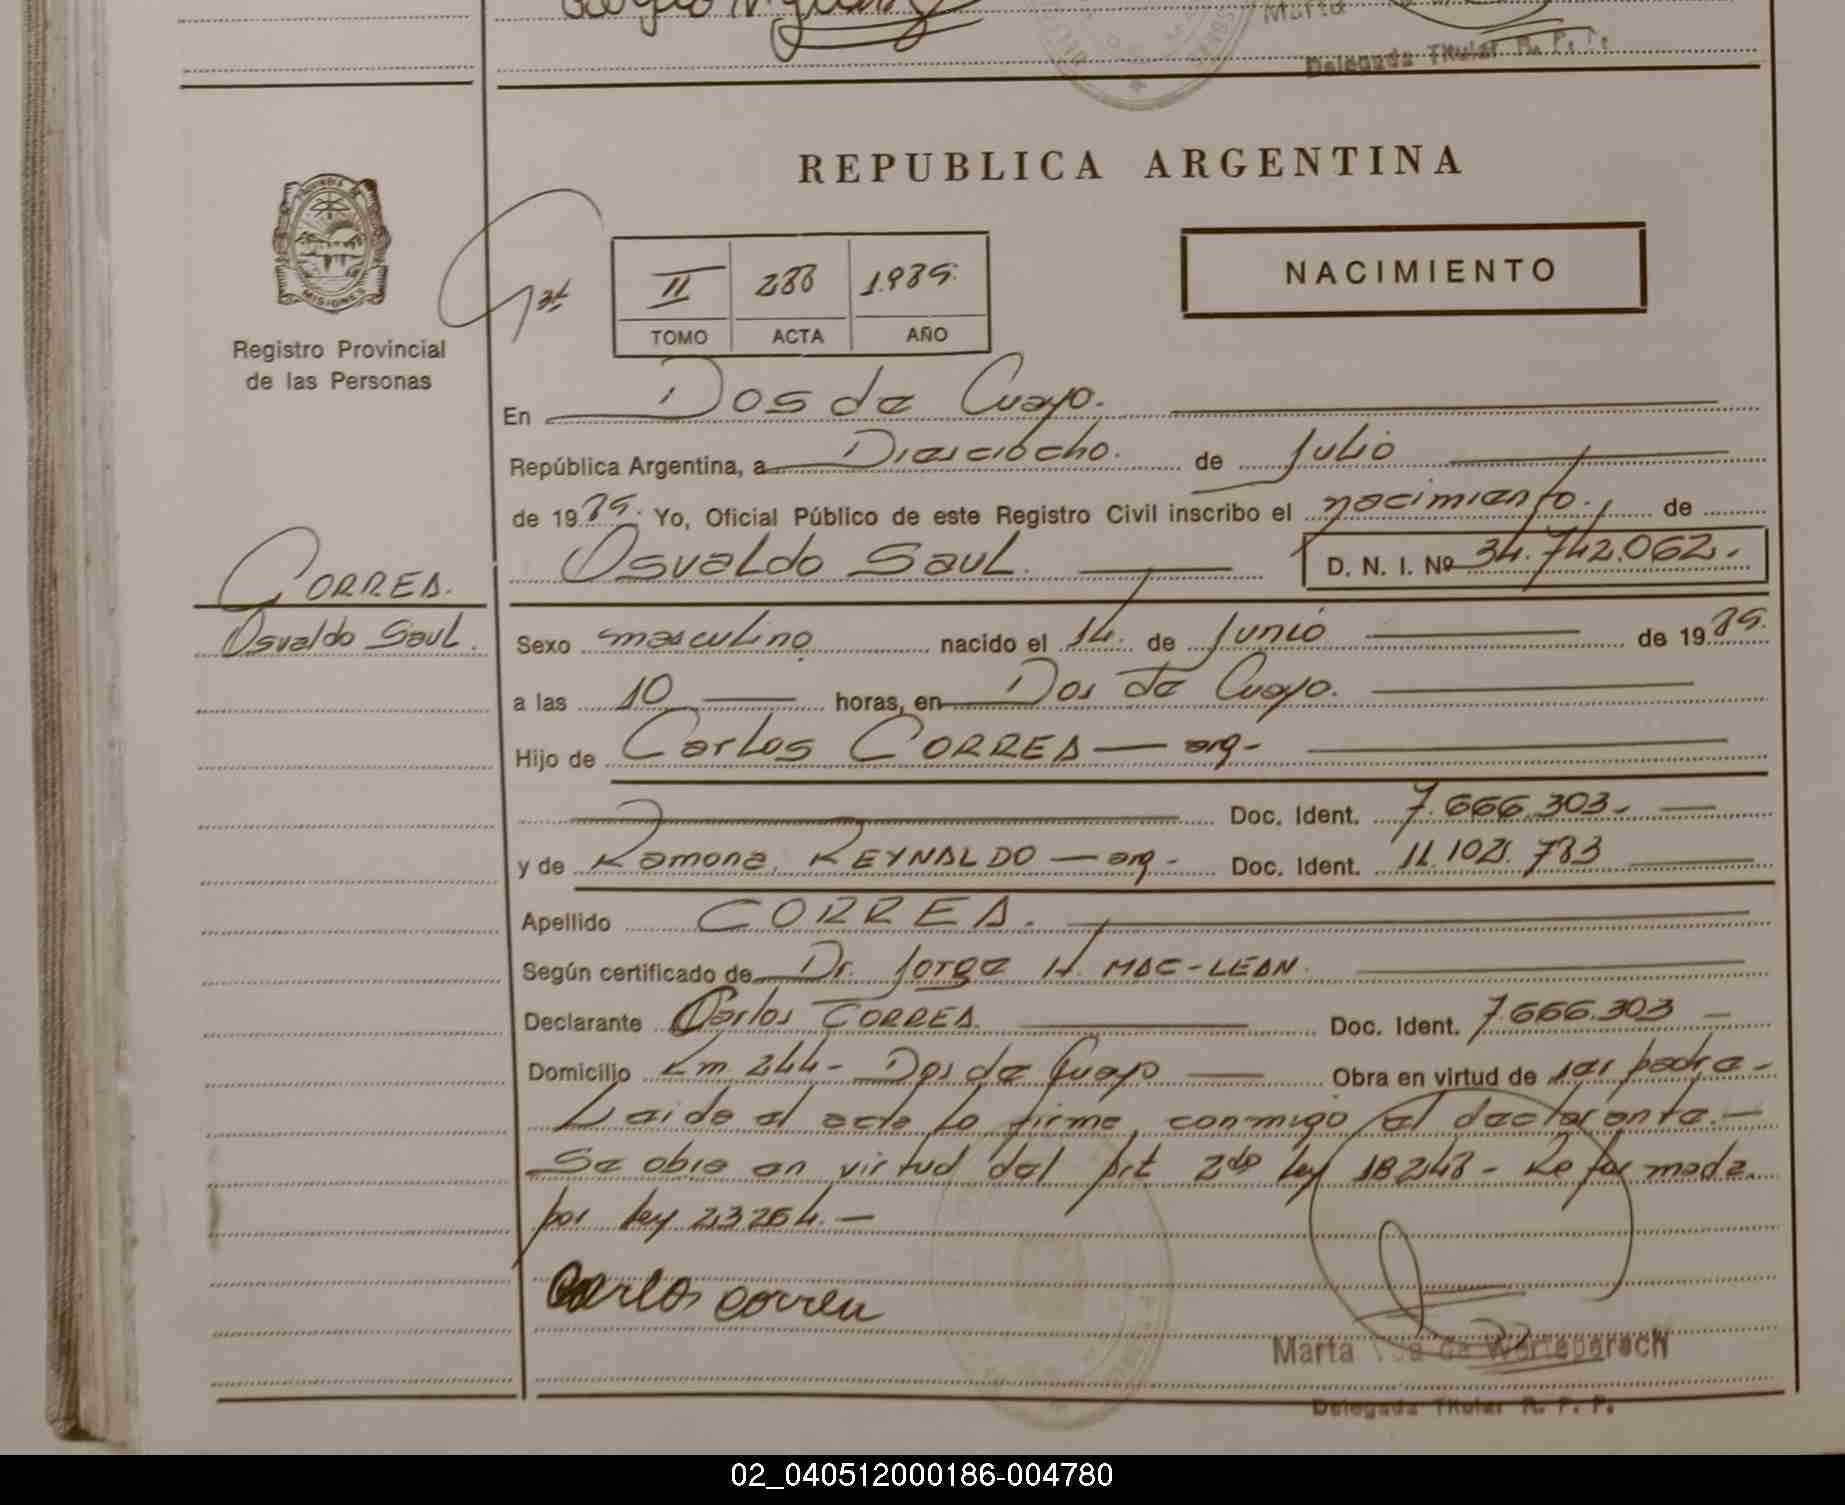 Marta
Delegada Titular R. P. P.
REPUBLICA ARGENTINA
MISIONES
Registro Provincial
de las Personas
II 288 1.989.
TOMO ACTA AÑO
NACIMIENTO
En Dos de Mayo.
República Argentina, a Dieciocho. de Julio
de 1989. Yo, Oficial Público de este Registro Civil inscribo el nacimiento. de
Osvaldo Saul. D. N. I. Nº 34.742.062.-
CORREA.
Osvaldo Saul.
Sexo masculino nacido el 14. de Junio de 1989.
a las 10 horas, en Dos de Mayo.
Hijo de Carlos CORREA — arg-
Doc. Ident. 7.666.303.-
y de Ramona, REYNALDO — arg- Doc. Ident. 11.102.783
Apellido CORREA.
Según certificado de Dr. Jorge H. MAC-LEAN.
Declarante Carlos CORREA. Doc. Ident. 7.666.303 —
Domicilio Km 244- Dos de Mayo — Obra en virtud de ser padre-
Leida el acta la firma, conmigo el declarante.—
Se obra en virtud del Art 2do ley 18248- Reformada.
por ley 23264.—
Carlos correa
Marta de
Delegada Titular R. P. P.
02_040512000186-004780